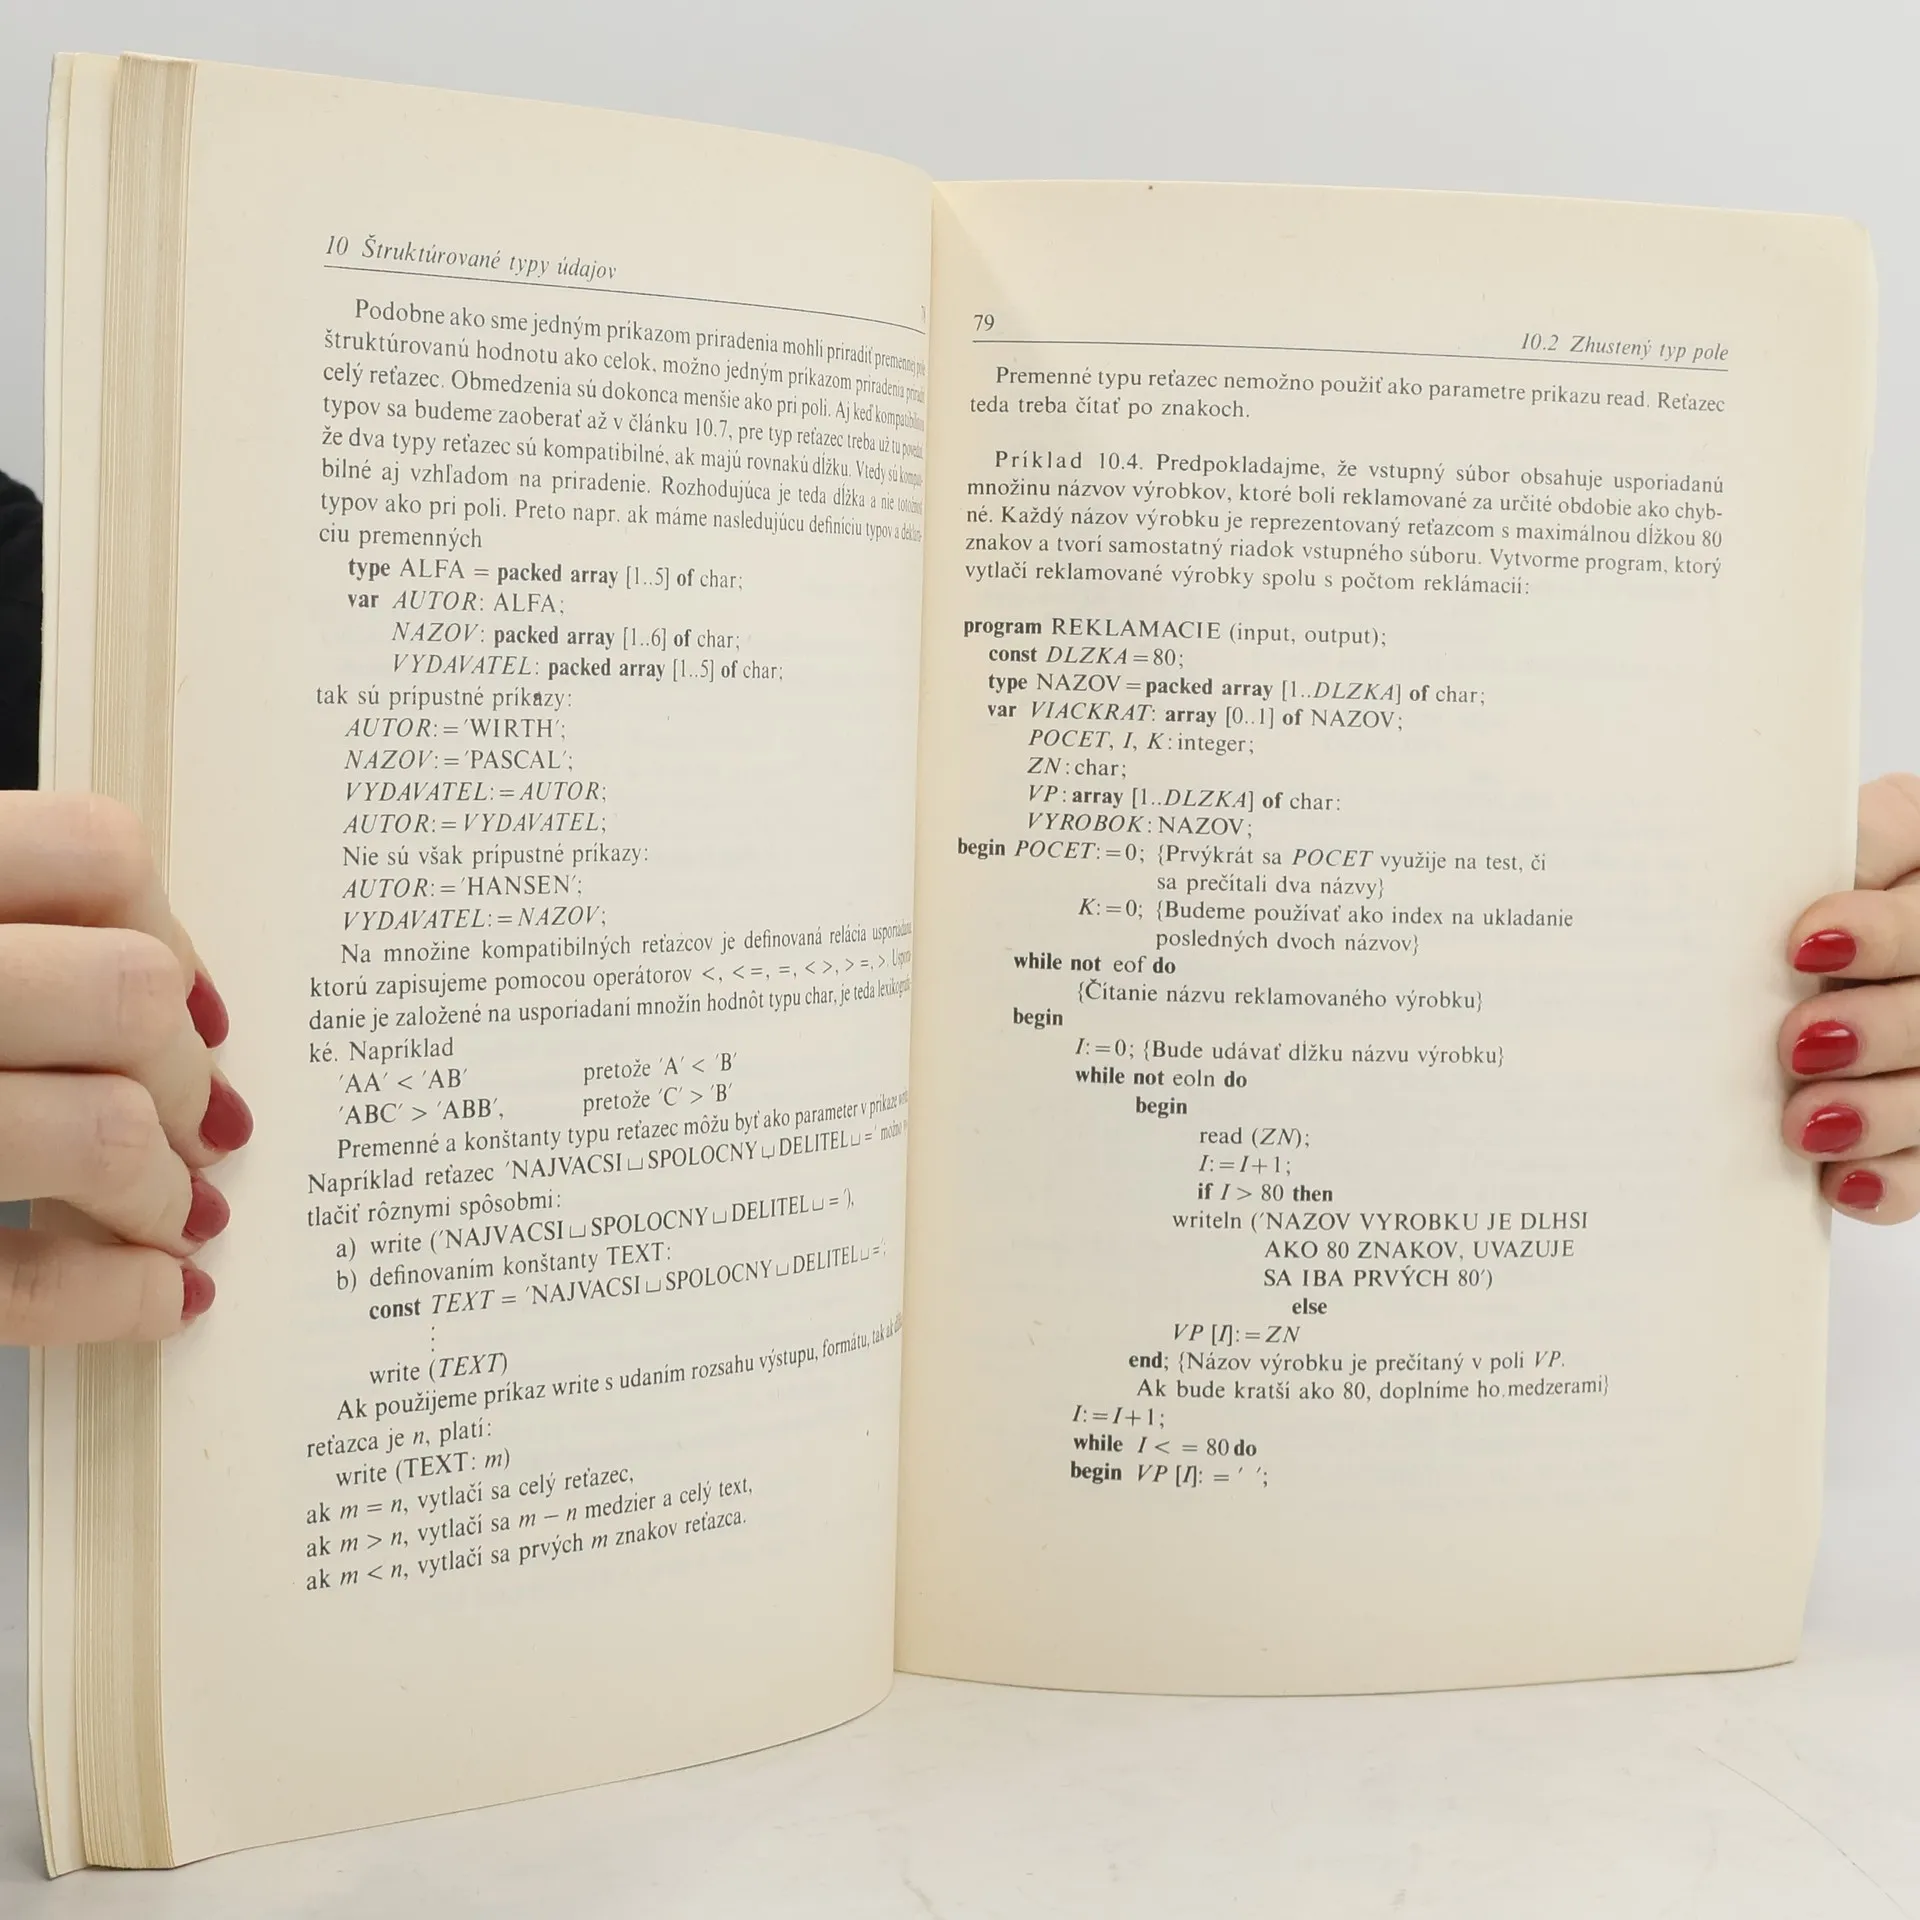 10 Štruktúrované typy údajov
Podobne ako sme jedným príkazom priradenia mohli priradiť premennej
štruktúrovanú hodnotu ako celok, možno jedným príkazom priradenia
celý reťazec. Obmedzenia sú dokonca menšie ako pri poli. Aj keď
typov sa budeme zaoberať až v článku 10.7, pre typ reťazec treba už tu
že dva typy reťazec sú kompatibilné, ak majú rovnakú dĺžku. Vtedy sú
bilné aj vzhľadom na priradenie. Rozhodujúca je teda dĺžka a nie
typov ako pri poli. Preto napr. ak máme nasledujúcu definíciu typov a
ciu premenných
type ALFA = packed array [1..5] of char;
var AUTOR: ALFA;
NAZOV: packed array [1..6] of char;
VYDAVATEL: packed array [1..5] of char;
tak sú prípustné príkazy:
AUTOR:='WIRTH';
NAZOV:='PASCAL';
VYDAVATEL:=AUTOR;
AUTOR:=VYDAVATEL;
Nie sú však prípustné príkazy:
AUTOR:='HANSEN';
VYDAVATEL:=NAZOV;
Na množine kompatibilných reťazcov je definovaná relácia
ktorú zapisujeme pomocou operátorov <, < =, =, < >, > =, >.
danie je založené na usporiadaní množín hodnôt typu char, je teda
ké. Napríklad
'AA' < 'AB' pretože 'A' < 'B'
'ABC' > 'ABB', pretože 'C' > 'B'
Premenné a konštanty typu reťazec môžu byť ako parameter v príkaze
Napríklad reťazec 'NAJVACSI␣SPOLOCNY␣DELITEL␣=' možno
tlačiť rôznymi spôsobmi:
a) write ('NAJVACSI␣SPOLOCNY␣DELITEL␣='),
b) definovaním konštanty TEXT:
const TEXT = 'NAJVACSI␣SPOLOCNY␣DELITEL␣=';
⋮
write (TEXT)
Ak použijeme príkaz write s udaním rozsahu výstupu, formátu, tak ak
reťazca je n, platí:
write (TEXT: m)
ak m = n, vytlačí sa celý reťazec,
ak m > n, vytlačí sa m − n medzier a celý text,
ak m < n, vytlačí sa prvých m znakov reťazca.
79
10.2 Zhustený typ pole
Premenné typu reťazec nemožno použiť ako parametre príkazu read. Reťazec
teda treba čítať po znakoch.
Príklad 10.4. Predpokladajme, že vstupný súbor obsahuje usporiadanú
množinu názvov výrobkov, ktoré boli reklamované za určité obdobie ako chyb-
né. Každý názov výrobku je reprezentovaný reťazcom s maximálnou dĺžkou 80
znakov a tvorí samostatný riadok vstupného súboru. Vytvorme program, ktorý
vytlačí reklamované výrobky spolu s počtom reklámacií:
program REKLAMACIE (input, output);
const DLZKA=80;
type NAZOV=packed array [1..DLZKA] of char;
var VIACKRAT: array [0..1] of NAZOV;
POCET, I, K: integer;
ZN: char;
VP: array [1..DLZKA] of char:
VYROBOK: NAZOV;
begin POCET:=0; {Prvýkrát sa POCET využije na test, či
sa prečítali dva názvy}
K:=0; {Budeme používať ako index na ukladanie
posledných dvoch názvov}
while not eof do
{Čítanie názvu reklamovaného výrobku}
begin
I:=0; {Bude udávať dĺžku názvu výrobku}
while not eoln do
begin
read (ZN);
I:=I+1;
if I > 80 then
writeln ('NAZOV VYROBKU JE DLHSI
AKO 80 ZNAKOV, UVAZUJE
SA IBA PRVÝCH 80')
else
VP [I]:=ZN
end; {Názov výrobku je prečítaný v poli VP.
Ak bude kratší ako 80, doplníme ho.medzerami}
I:=I+1;
while I < = 80 do
begin VP [I]: = ' ';